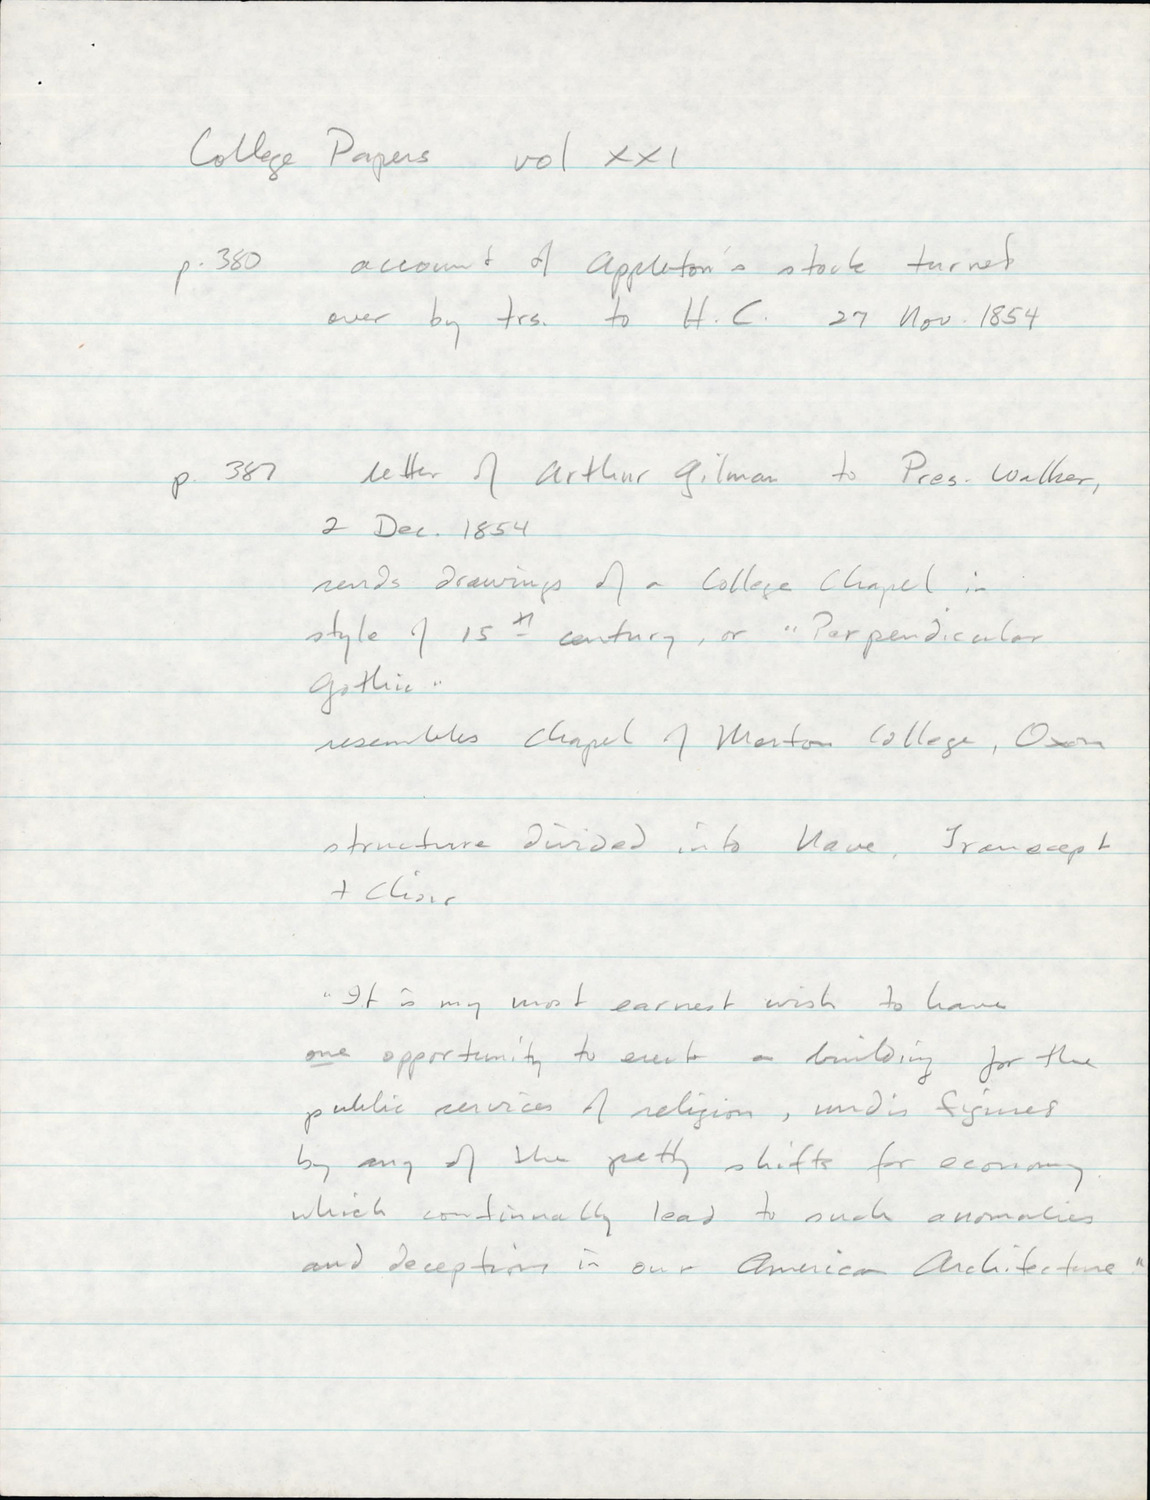 College Papers vol XXI
p. 380 account of Appleton's stock turned
over by trs. to H.C. 27 Nov. 1854
p. 387 letter of Arthur Gilman to Pres. Walker,
2 Dec. 1854
sends drawings of a College Chapel in
style of 15th century, or "Perpendicular
Gothic"
resembles Chapel of Merton College, Oxon
structure divided into Nave, Transcept
+ Choir
"It is my most earnest wish to have
one opportunity to erect a building for the
public services of religion, undisfigured
by any of the petty shifts for economy
which continually lead to such anomalies
and deceptions in our American Architecture"